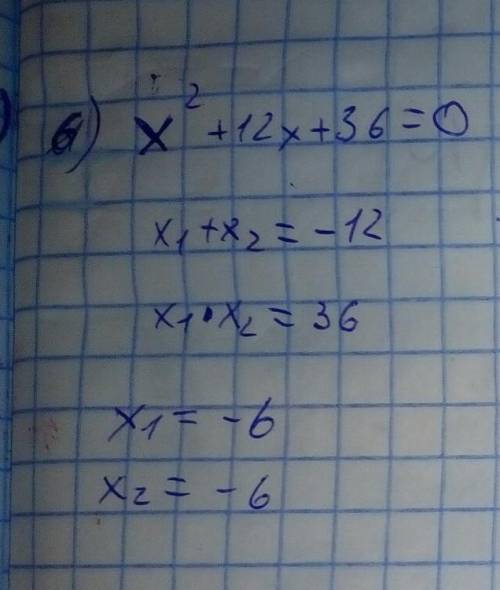 6) x² + 12x + 36 = 0
x₁ + x₂ = -12
x₁ · x₂ = 36
x₁ = -6
x₂ = -6